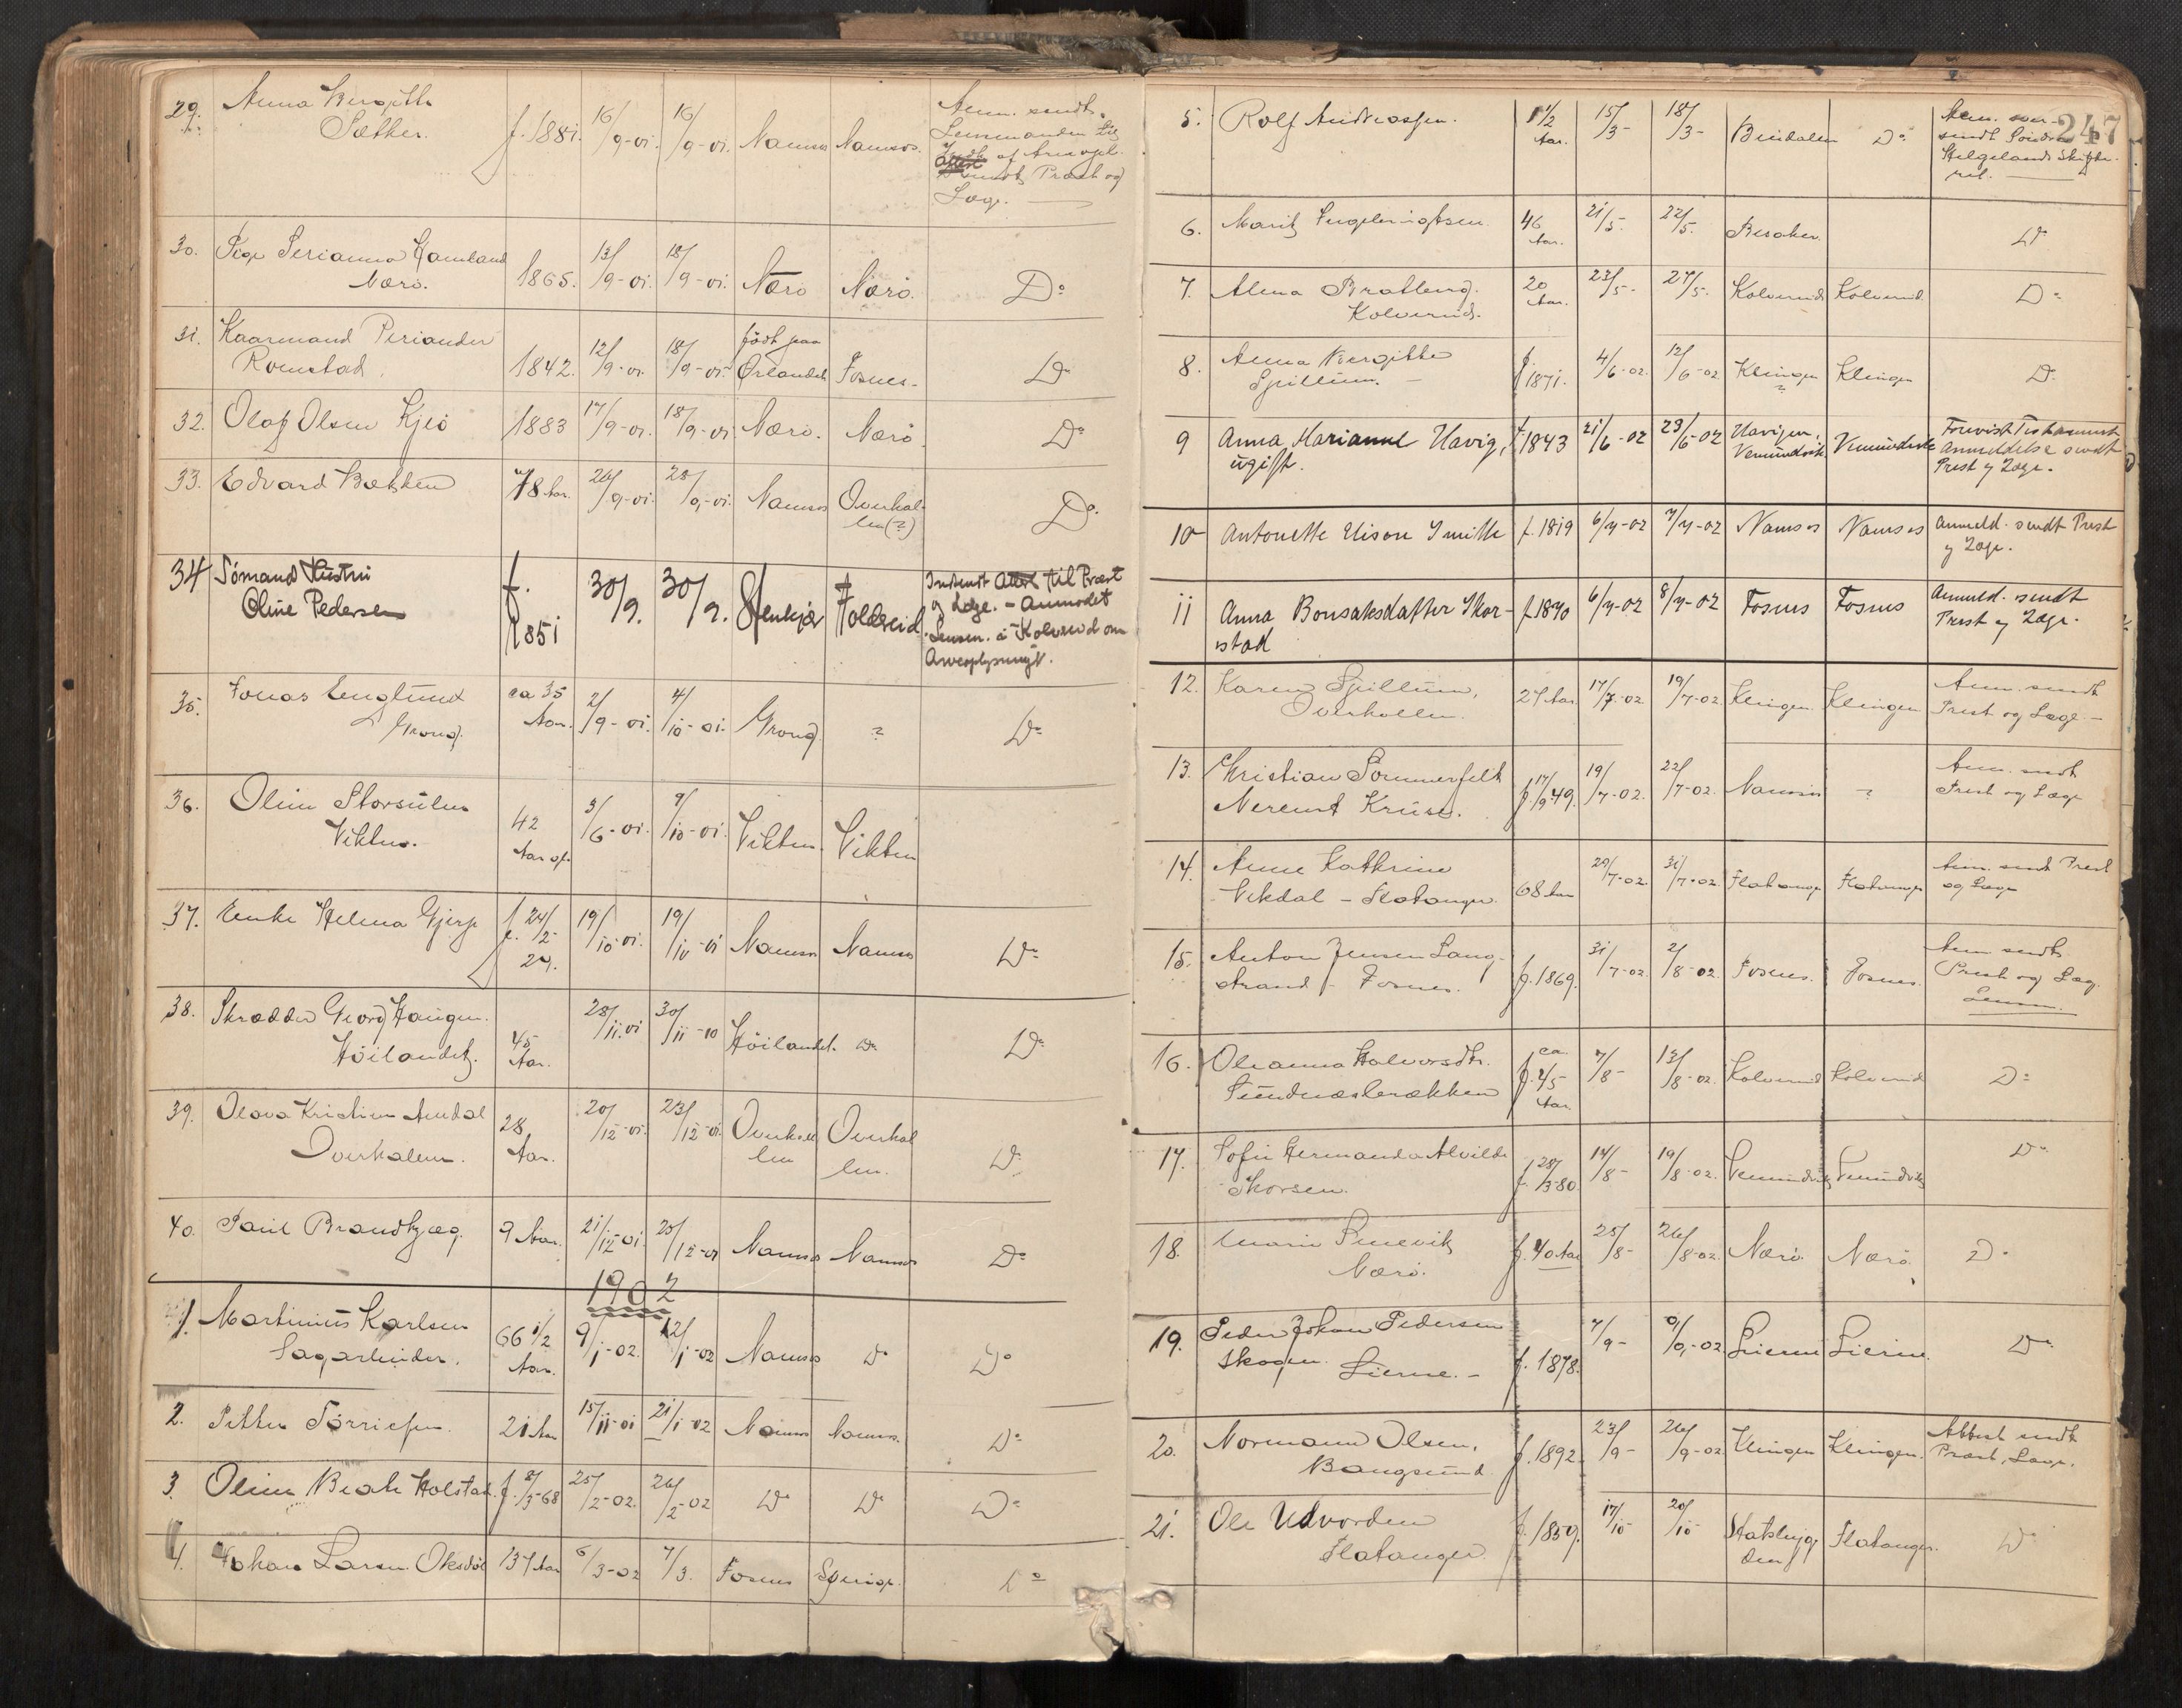 29. Anna Bergitte
Sæther. f. 1881. 16/9-01. 16/9-01. Namsos Namsos. Anm. sendt
Lensmanden
af
Præst og
Læge.
30. Pige Perianna Hamland
Nærø. 1865. 13/9-01. 18/9-01. Nærö Nærö. Do
31. Kaarmand Periander
Romstad. 1842. 12/9-01. 18/9-01. født paa
Ørlandet Fosnes. Do
32. Olaf Olsen Kjeö 1883 17/9-01. 18/9-01 Nærö. Nærö. Do
33. Edvard Bakken 78 Aar. 26/9-01. 28/9-01. Namsos Overhal-
len(?) Do.
34 Sömand Hustru
Oline Pedersen f. 1851 30/9. 30/9. Stenkjær Foldereid Indsendt Attest til Præst
og Læge. - Anmodet
Lensm. i Kolvereid om
Arveoplysning.
35. Jonas Englund
Grong. ca 35
Aar. 2/9-01. 4/10-01. Grong. ? Do
36. Oline Storsulen
Vikten. 42
Aar gl. 3/6-01. 9/10-01. Vikten. Vikten
37. Enke Helena Gjerp f. 24/2-
27. 19/10-01. 19/10-01 Namsos Namsos Do
38. Skrædder Georg Haugen.
Höilandet. 45
Aar. 28/11-01 30/11-10 Höilandet. Do. Do
39. Olava Kristine Amdal
Overhalen. 28
Aar. 20/12-01. 23/12-01. Overhal
len Overhal
len. Do
40. Paul Brandtzæg. 9 Aar. 21/12-01. 25/12-01 Namsos Namsos Do
1902
1. Martinius Karlsen
Sagarbeider. 66 1/2
Aar. 9/1-02. 12/1-02 Namsos Do Do
2. Petter Torrissen. 21 Aar 15/11-01 21/1-02 Namsos Namsos. Do
3. Oline Beate Holstad. f. 8/3-68 25/2-02. 26/2-02 Do Do Do
4. Johan Larsen Oksdöl 137 Aar 6/3-02 7/3. Fosnes Do
247
5. Rolf Andreassen. 1 1/2
Aar. 15/3- 18/3- Bindalen Do Anm. over-
sendt Söndre
Helgelands Skifte-
ret.
6. Marit Ingebrigtsen 46
Aar. 21/5- 22/5. Besaker. Do
7. Alma Bratberg.
Kolvereid. 20
Aar. 23/5- 27/5. Kolvereid Kolvereid. Do
8. Anna Bergitte
Spillum. f.
1871. 4/6-02. 12/6-02 Klingen
? Klingen Do
9 Anna Marianne Havig,
ugift. f. 1843 21/6-02 23/6-02 Havigen,
Vemundvik Vemundvik Forevist Testament
Anmeldelse sendt
Prest og Læge.
10 Antonette Elison Smitle f. 1819 6/7-02 7/7-02 Namsos Namsos Anmeld. sendt Prest
og Læge.
11 Anna Bonsaksdatter Skor-
stad f. 1870 6/7-02 8/7-02 Fosnes Fosnes Anmeld. sendt
Prest og Læge.
12. Karen Spillum,
Overhallen. 27 Aar. 17/7-02 19/7-02 Klingen. Klingen Anm. sendt
Prest og Læge -
13. Christian Sommerfelt
Nereust Kruse. f. 17/9 49. 19/7-02. 22/7-02. Namsos ? Anm. sendt
Prest og Læge
14. Anne Kathrine
Vikdal - Flatanger. 68 Aar 29/7-02. 31/7-02. Flatanger Flatanger Anm. sendt Prest
og Læge
15. Anton Jensen Lang-
strand - Fosnes. f. 1869. 31/7-02. 2/8-02. Fosnes. Fosnes. Anm. sendt
Prest og Læge.
Lensm.
16. Oleanna Halvorsdtr.
Sundnæsbrækken ca
f. 45
Aar. 7/8- 13/8-02. Kolvereid Kolvereid Do
17. Sofie Hermanda Alvilde
Skorsen. f. 28/3-80. 14/8- 19/8-02. Vemundvik Vemundvik Do
18. Marie Finevik
Nærö. f. 40 Aar 25/8- 26/8-02. Nærö. Nærö Do
19. Peder Johan Pedersen
Skogen. Lierne. - f. 1878. 7/9- 9/9-02 Lierne Lierne. Do
20. Normann Olsen,
Bangsund. f. 1892. 23/9- 26/9-02 Klingen Klingen. Attest sendt
Præst, Læge.
21. Ole Udvorden
Flatanger. f. 1850. 17/10- 20/10 Flatanger. Do